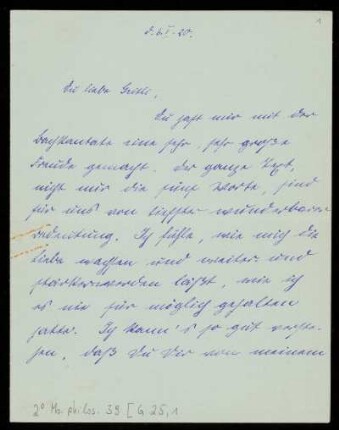 1
d. 6. I. 20.
Du liebe Gritli,
Du hast mir mit der
Bachkantate eine sehr, sehr große
Freude gemacht. Der ganze Text,
nicht nur die fünf Worte, sind
für uns von tiefster wunderbarer
Bedeutung. Ich fühle, wie mich die
Liebe wachsen und weiter und
stärker werden läßt, wie ich
es nie für möglich gehalten
hatte. Ich kann's so gut verste-
hen, daß Du Dir von meinem
2° Ms. philos. 39 [G 25,1